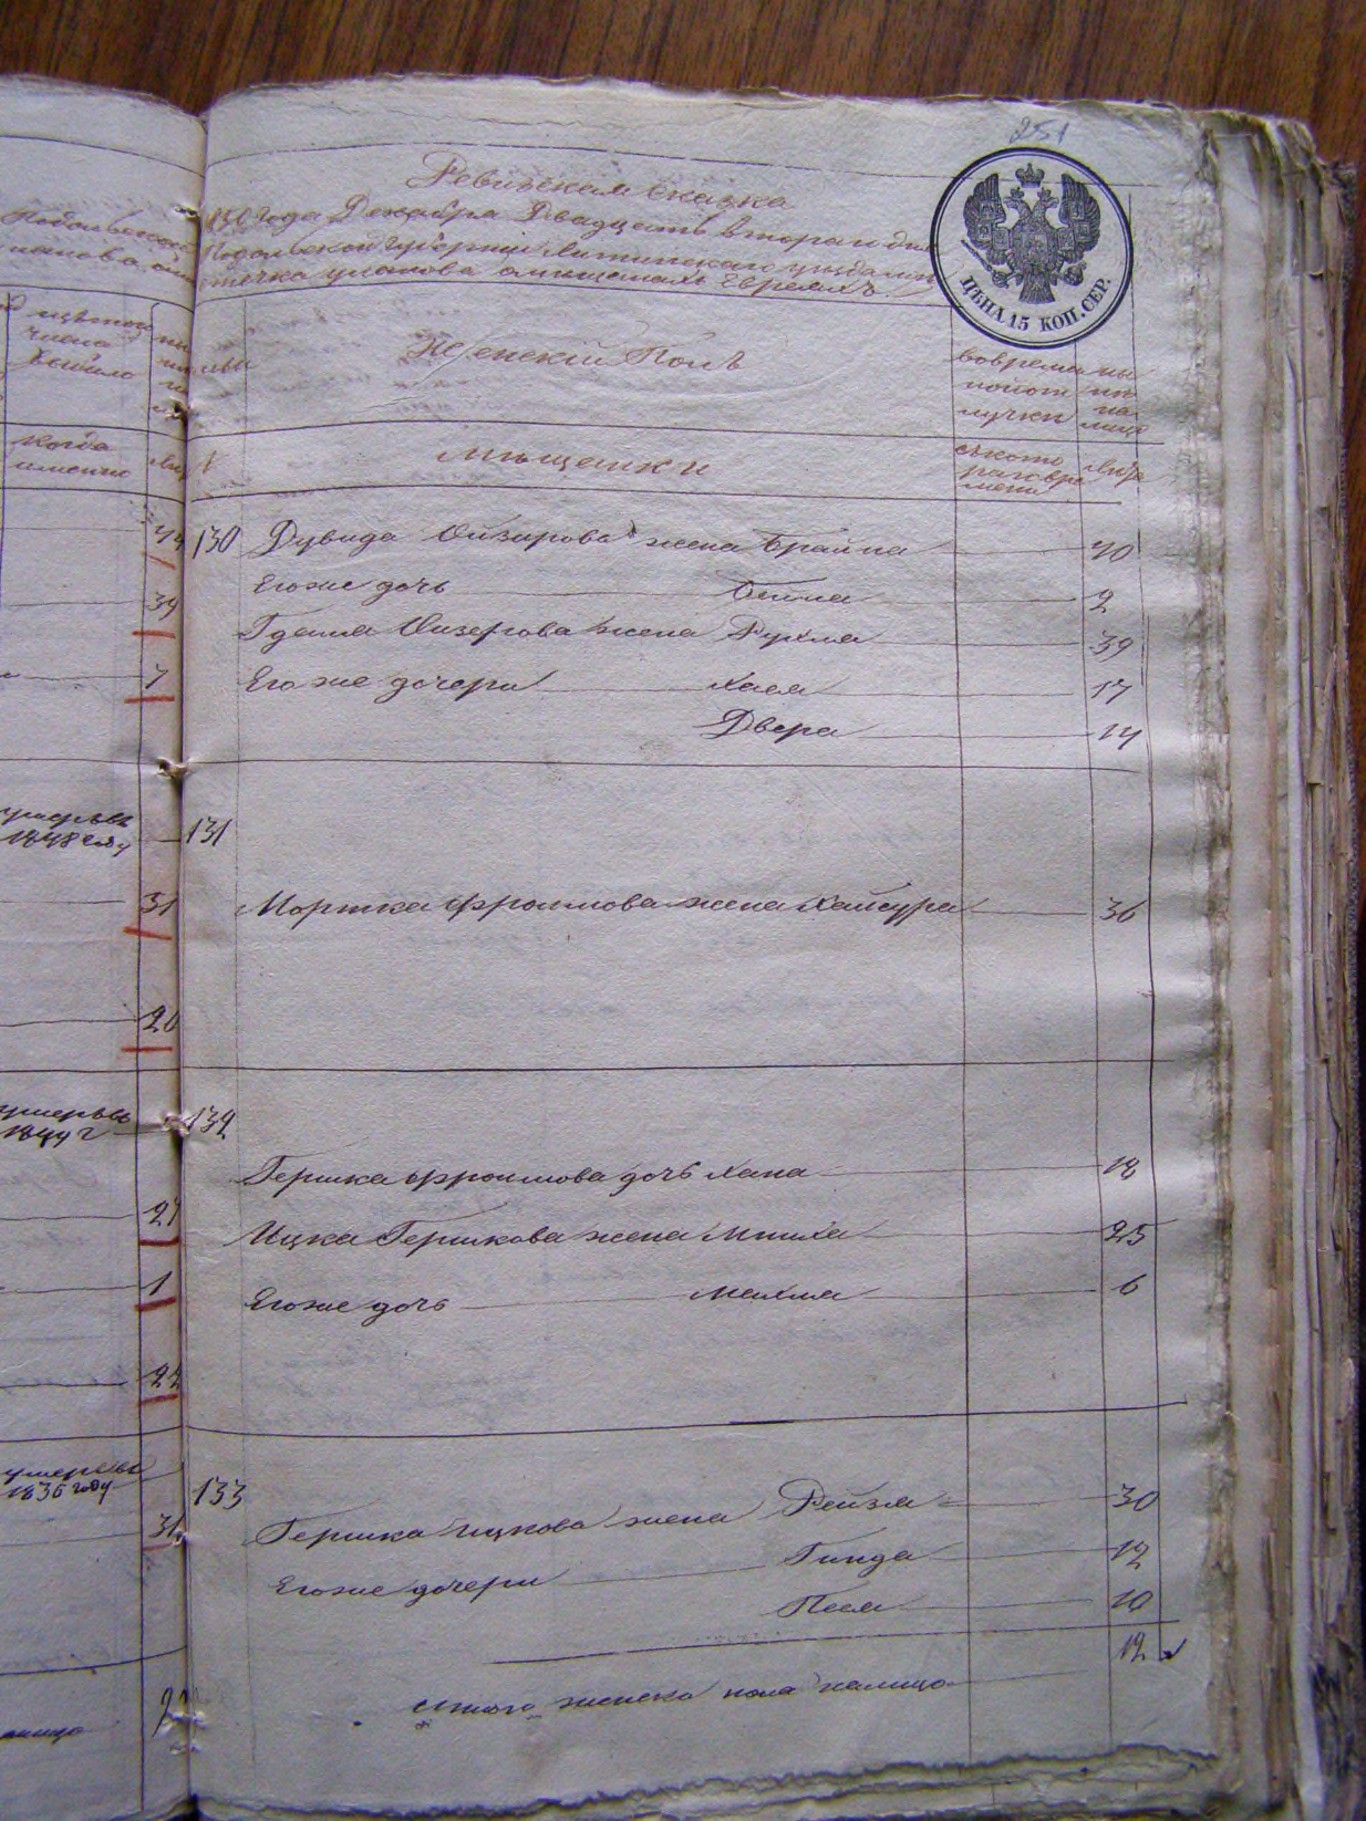 251
Ревизская сказка
1850 года Декабря Двадцать втораго дня
Подольской Губернии Литинскаго уезда мест
течка уланова о мещанахъ Евреяхъ.
ЦѢНА 15 КОП. СЕР.
Женский Полъ
вовремя
ны
отлучки
лицо
Мещанки
лѣта
130 Дувида Ойзерова жена Брайна 40
Егоже дочь 2
Гдаля Ойзерова жена Рухля 39
Его же дочери Хая 17
Двера 14
131
Моршка Фроимова жена Хайсура 36
132
Гершка Фроимова дочь Хана 18
Ицка Гершкова жена 25
Егоже дочь Махля 6
133
Гершка Ицкова жена Рейзя 30
Егоже дочери Гинда 12
Песя 10
12
итого женска пола налицо
Подольской
уланова
когда
именно
44
39
7
умерывъ
1848 году
31
20
умерывъ
1844 г
27
1
22
умерывъ
1836 году
31